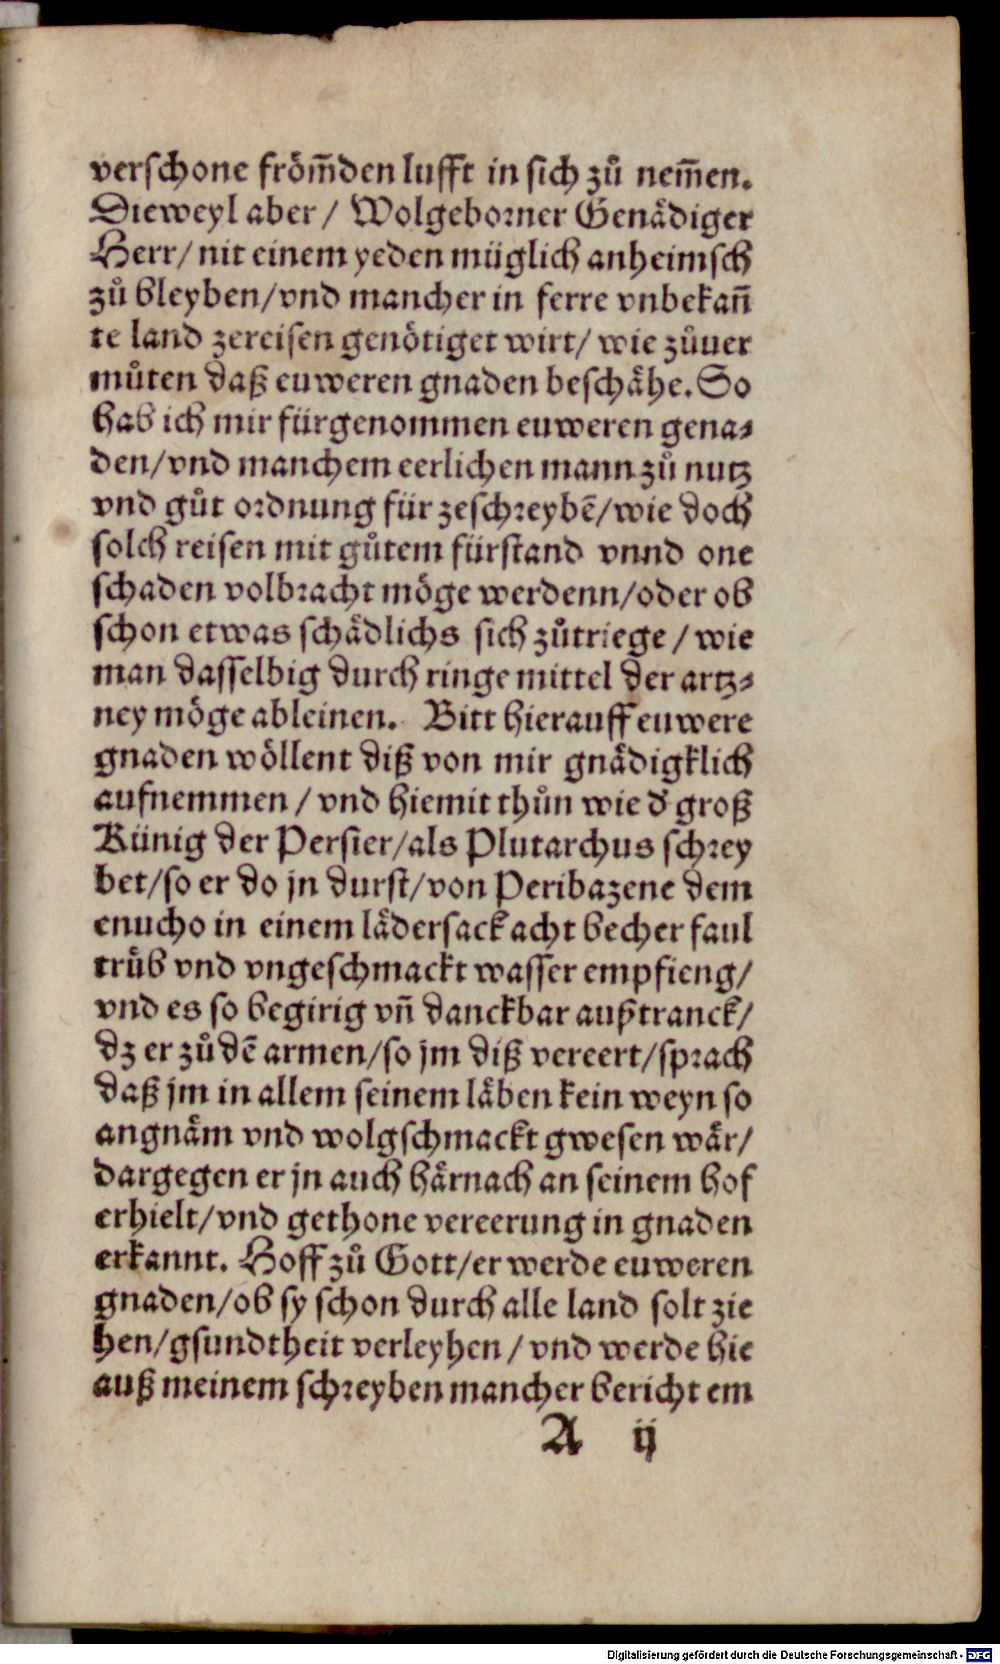 verschone fröm̄den lufft in sich zů nem̄en.
Dieweyl aber / Wolgeborner Genådiger
Herr/ nit einem yeden müglich anheimsch
zů bleyben/vnd mancher in ferre vnbekan̄
te land zereisen genötiget wirt/ wie zůuer
můten daß euweren gnaden beschåhe. So
hab ich mir fürgenommen euweren gena⸗
den/vnd manchem eerlichen mann zů nutz
vnd gůt ordnung für zeschreybē/wie doch
solch reisen mit gůtem fürstand vnnd one
schaden volbracht möge werdenn/oder ob
schon etwas schådlichs sich zůtriege / wie
man dasselbig durch ringe mittel der artz⸗
ney möge ableinen. Bitt hierauff euwere
gnaden wöllent diß von mir gnådigklich
aufnemmen / vnd hiemit thůn wie d' groß
Künig der Persier/als Plutarchus schrey
bet/so er do jn durst/von Peribazene dem
enucho in einem lådersack acht becher faul
trüb vnd vngeschmackt wasser empfieng/
vnd es so begirig vn̄ danckbar außtranck/
dz er zů dē armen/so jm diß vereert/sprach
daß jm in allem seinem låben kein weyn so
angnåm vnd wolgschmackt gwesen wår/
dargegen er jn auch hårnach an seinem hof
erhielt/vnd gethone vereerung in gnaden
erkannt. Hoff zů Gott/er werde euweren
gnaden/ob sy schon durch alle land solt zie
hen/gsundtheit verleyhen / vnd werde hie
auß meinem schreyben mancher bericht em
A ij
Digitalisierung gefördert durch die Deutsche Forschungsgemeinschaft - DFG